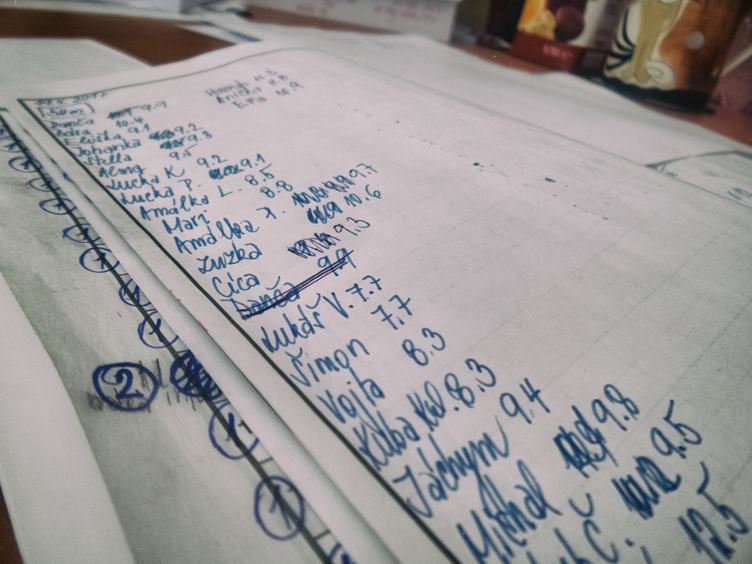 50m
Danča 9.9
Bára 10.4
Eliška 9.1
Johanka 9.2
Stella 9.3
Alma 9.5
Lucka K. 9.2
Lucka P. 9.1
Amálka L. 8.5
Mari 8.8
Amálka 9.7
Zuzka 10.6
Cica 9.3
Danča 9.9
Lukáš V. 7.7
Šimon 7.7
Vojta 8.3
Kuba Kol. 8.3
Jáchym 9.4
Michal 9.8
Č. 9.5
12.5
Hannah
Anička 8.8
Ema 10.9
1
1
1
1
1
1
2
1
1